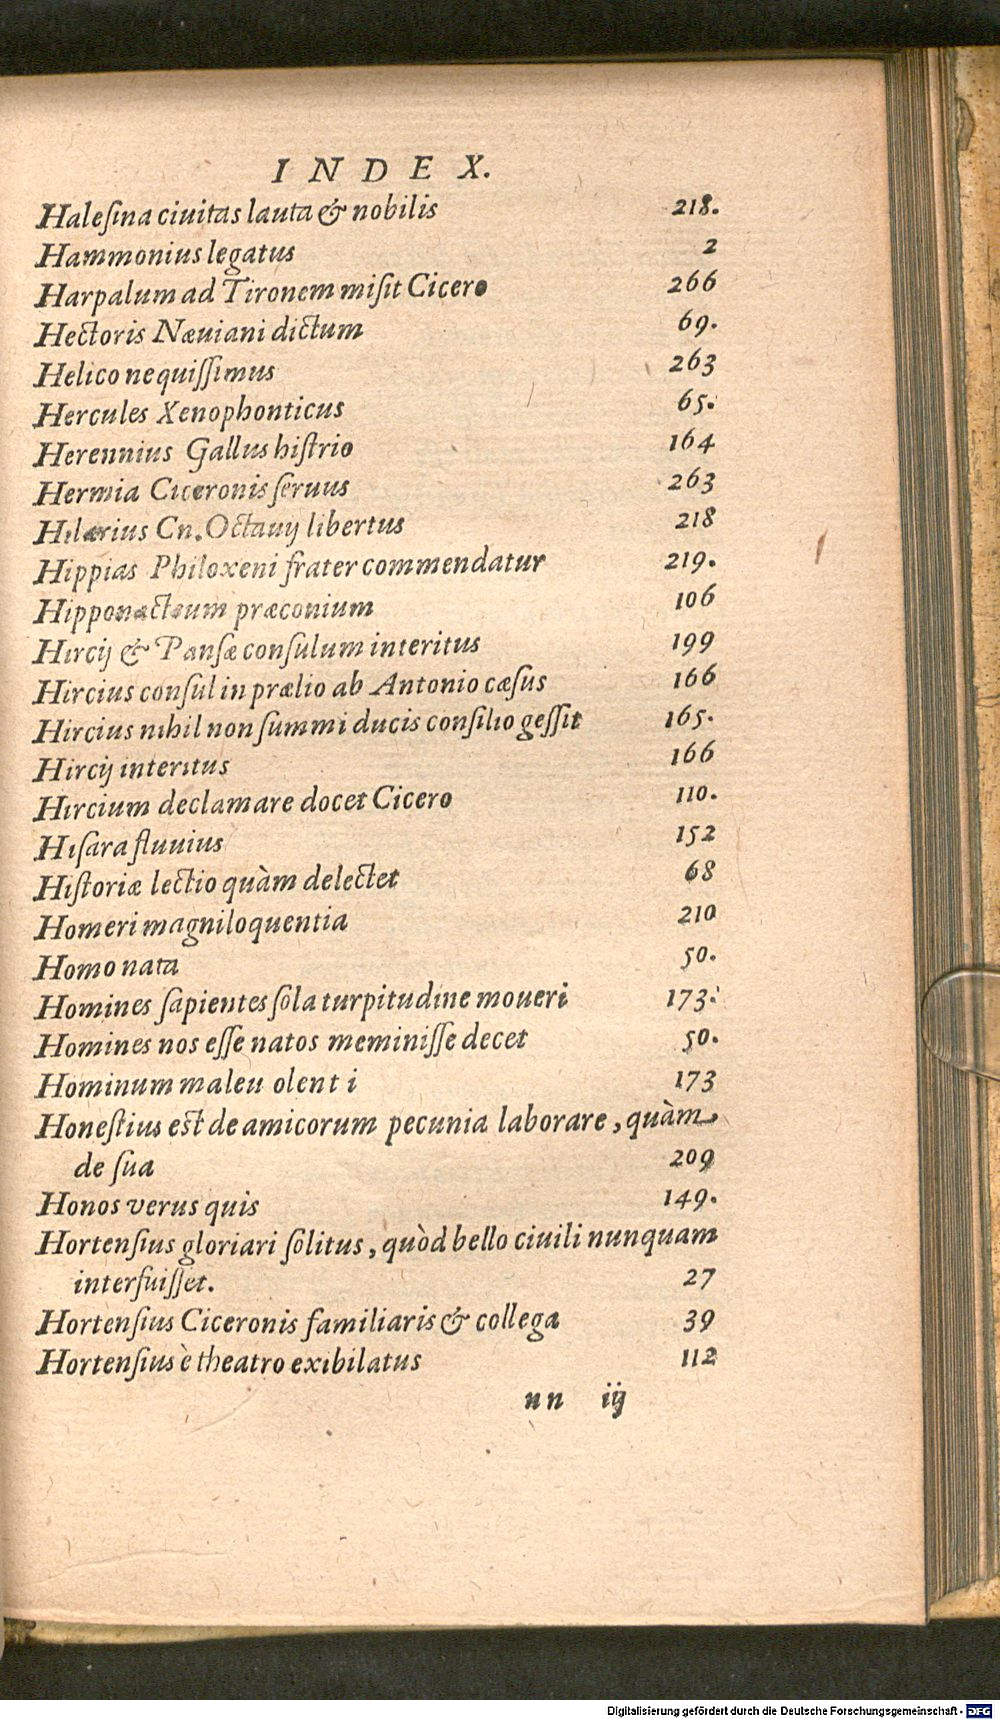 INDEX.
Halesina ciuitas lauta & nobilis 218.
Hammonius legatus 2
Harpalum ad Tironem misit Cicero 266
Hectoris Næuiani dictum 69.
Helico nequissimus 263
Hercules Xenophonticus 65.
Herennius Gallus histrio 164
Hermia Ciceronis seruus 263
Hilarius Cn. Octauij libertus 218
Hippias Philoxeni frater commendatur 219.
Hipponacteum præconium 106
Hircij & Pansæ consulum interitus 199
Hircius consul in prælio ab Antonio cæsus 166
Hircius nihil non summi ducis consilio gessit 165.
Hircij interitus 166
Hircium declamare docet Cicero 110.
Hisara fluuius 152
Historiæ lectio quàm delectet 68
Homeri magniloquentia 210
Homo nata 50.
Homines sapientes sola turpitudine moueri 173.
Homines nos esse natos meminisse decet 50.
Hominum maleu olent i 173
Honestius est de amicorum pecunia laborare, quàm
de sua 209
Honos verus quis 149.
Hortensius gloriari solitus, quòd bello ciuili nunquam
interfuisset. 27
Hortensius Ciceronis familiaris & collega 39
Hortensius è theatro exibilatus 112
nn iij
Digitalisierung gefördert durch die Deutsche Forschungsgemeinschaft - DFG